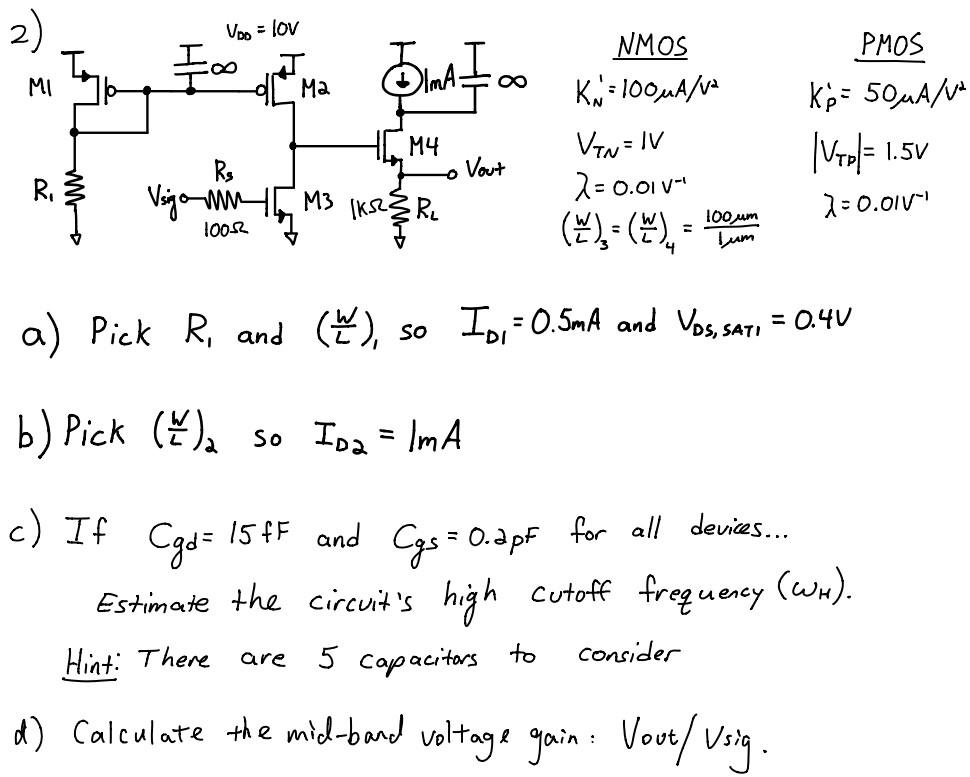 2)
V_DD = 10V
M1
∞
M2
1mA
∞
M4
Vout
R_1
R_s
Vsig
100Ω
M3
1KΩ
R_L
NMOS
K_N' = 100μA/V²
V_TN = 1V
λ = 0.01V⁻¹
(W/L)_3 = (W/L)_4 = 100μm/1μm
PMOS
K_P' = 50μA/V²
|V_TP| = 1.5V
λ = 0.01V⁻¹
a) Pick R_1 and (W/L)_1 so I_D1 = 0.5mA and V_DS,SAT1 = 0.4V
b) Pick (W/L)_2 so I_D2 = 1mA
c) If Cgd = 15fF and Cgs = 0.2pF for all devices...
Estimate the circuit's high cutoff frequency (ω_H).
Hint: There are 5 capacitors to consider
d) Calculate the mid-band voltage gain: Vout/Vsig.